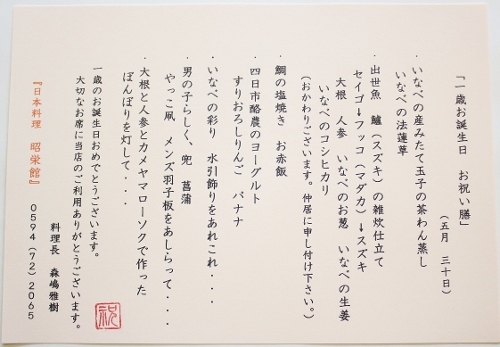 「一歳お誕生日　お祝い膳」
（五月　三十日）
・いなべの産みたて玉子の茶わん蒸し
いなべの法蓮草
・出世魚　鱸（スズキ）の雑炊仕立て
セイゴ→フッコ（マダカ）→スズキ
大根　人参　いなべのお葱　いなべの生姜
いなべのコシヒカリ
（おかわりございます。仲居に申し付け下さい。）
・鯛の塩焼き　お赤飯
・四日市酪農のヨーグルト
すりおろしりんご　バナナ
・いなべの彩り　水引飾りをあれこれ・・・
・男の子らしく、兜　菖蒲
やっこ凧　メンズ羽子板をあしらって・・・
・大根と人参とカメヤマローソクで作った
ぼんぼりを灯して・・・
一歳のお誕生日おめでとうございます。
大切なお席に当店のご利用ありがとうございます。
料理長　森嶋雅樹
『日本料理　昭栄館』　0594（72）2065
祝